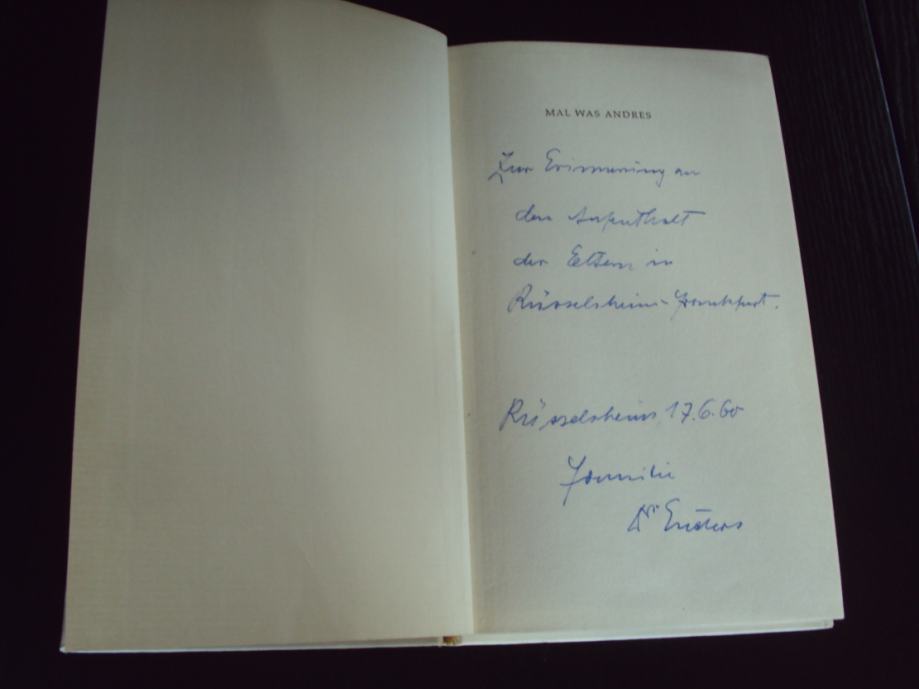 MAL WAS ANDRES
Zur Erinnerung an
den Aufenthalt
der Eltern in
Rüsselsheim-Frankfurt.
Rüsselsheim 17.6.60
Familie
Dr